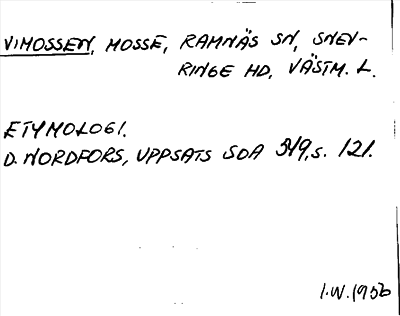 VIMOSSEN, MOSSE, RAMNÄS SN, SNEV-
RINGE HD, VÄSTM. L.
ETYMOLOGI.
D. NORDFORS, UPPSATS SOA 349, s. 121.
I.W. 1956